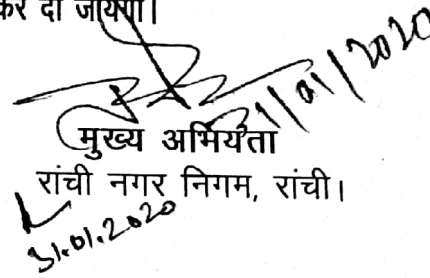 कर दी जायेगी।
31/01/2020
मुख्य अभियंता
रांची नगर निगम, रांची।
31.01.2020